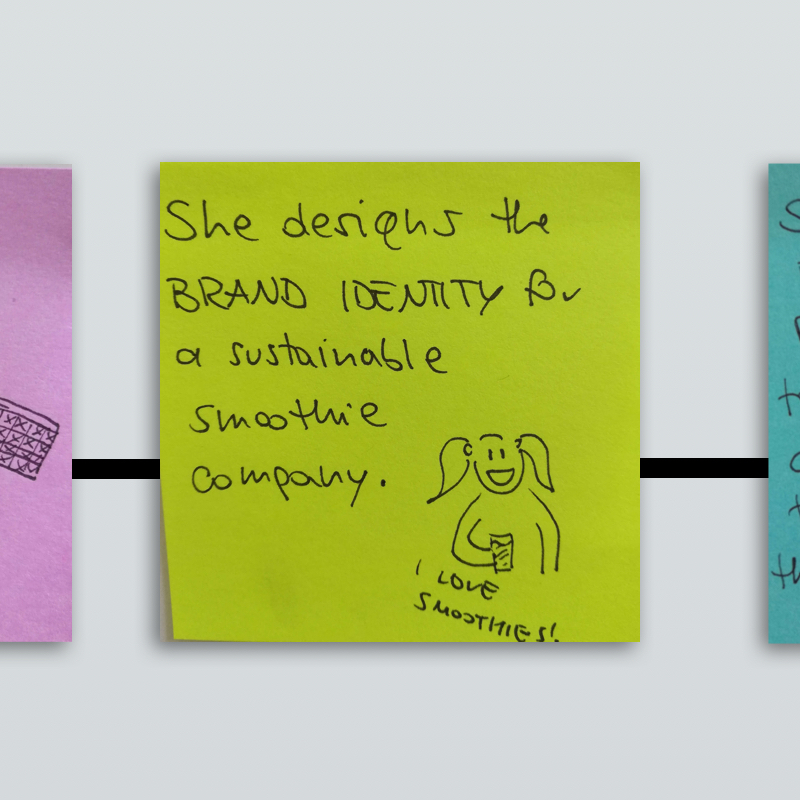 She designs the
BRAND IDENTITY for
a sustainable
smoothie
company.
I LOVE
SMOOTHIES!